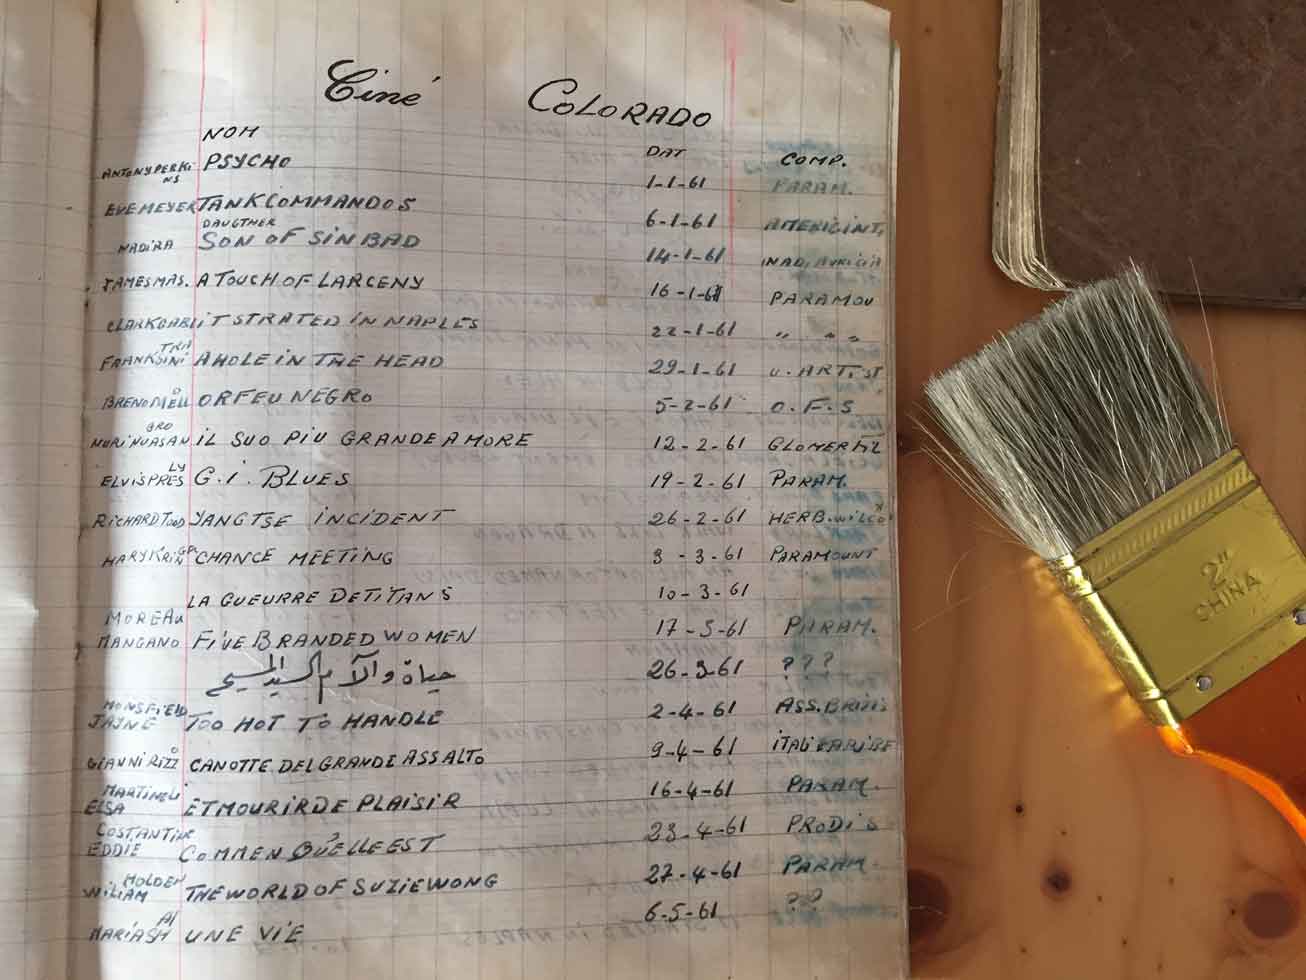 Ciné COLORADO
NOM DAT COMP.
ANTONYPERKI NS PSYCHO 1-1-61 PARAM.
EVEMEYER TANKCOMMANDOS 6-1-61
NADIRA DAUGTHER SON OF SINBAD 14-1-61
JAMESMAS. A TOUCH OF LARCENY 16-1-61 PARAMOU
CLARKGABL IT STRATED IN NAPLES 22-1-61 " " "
FRANKSINI TRA A HOLE IN THE HEAD 29-1-61 U.ARTIST
BRENOMELL O ORFEU NEGRO 5-2-61 O.F.S
IL SUO PIU GRANDE AMORE 12-2-61
ELVISPRES LY G.I. BLUES 19-2-61 PARAM.
RICHARDTODD YANGTSE INCIDENT 26-2-61 HERB.WILCOX
CHANCE MEETING 3-3-61 PARAMOUNT
LA GUEURRE DETITANS 10-3-61
MOREAU
MANGANO FIVE BRANDED WOMEN 17-3-61 PARAM.
حياة وآلام السيد المسيح 26-3-61 ???
MONSFIELD
JAYNE TOO HOT TO HANDLE 2-4-61
GIANNIRIZZ O CANOTTE DEL GRANDE ASSALTO 9-4-61
MARTINELI
ELSA ET MOURIR DE PLAISIR 16-4-61 PARAM.
COSTANTINE
EDDIE COMMEN QUELLE EST 23-4-61 PRODIS
HOLDEN
WILIAM THE WORLD OF SUZIE WONG 27-4-61 PARAM.
MARIASH AI UNE VIE 6-5-61 ??
2"
CHINA